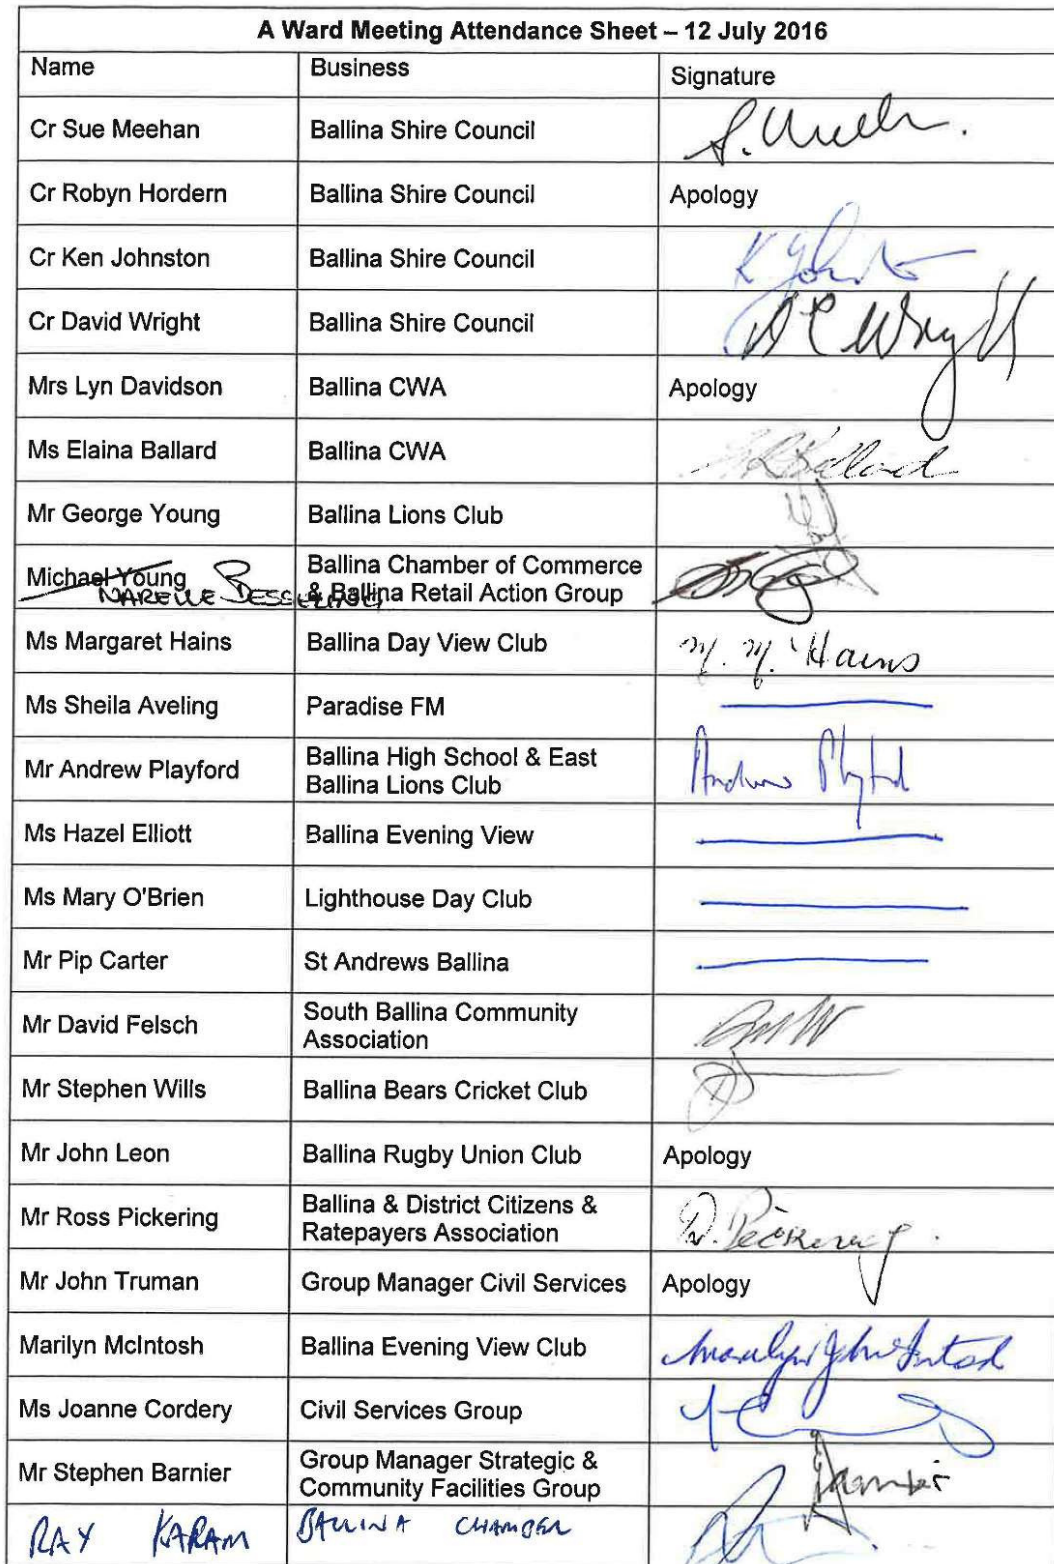 A Ward Meeting Attendance Sheet – 12 July 2016
Name Business Signature
Cr Sue Meehan Ballina Shire Council S.
Cr Robyn Hordern Ballina Shire Council Apology
Cr Ken Johnston Ballina Shire Council K
Cr David Wright Ballina Shire Council D C Wright
Mrs Lyn Davidson Ballina CWA Apology
Ms Elaina Ballard Ballina CWA Ballard
Mr George Young Ballina Lions Club
Michael Young Ballina Chamber of Commerce
NARELLE & Ballina Retail Action Group
Ms Margaret Hains Ballina Day View Club M. M. Hains
Ms Sheila Aveling Paradise FM
Mr Andrew Playford Ballina High School & East
Ballina Lions Club Andrew
Ms Hazel Elliott Ballina Evening View
Ms Mary O'Brien Lighthouse Day Club
Mr Pip Carter St Andrews Ballina
Mr David Felsch South Ballina Community
Association
Mr Stephen Wills Ballina Bears Cricket Club
Mr John Leon Ballina Rugby Union Club Apology
Mr Ross Pickering Ballina & District Citizens &
Ratepayers Association Pickering
Mr John Truman Group Manager Civil Services Apology
Marilyn McIntosh Ballina Evening View Club Marilyn
Ms Joanne Cordery Civil Services Group
Mr Stephen Barnier Group Manager Strategic &
Community Facilities Group Barnier
RAY KARAM BALLINA CHAMBER